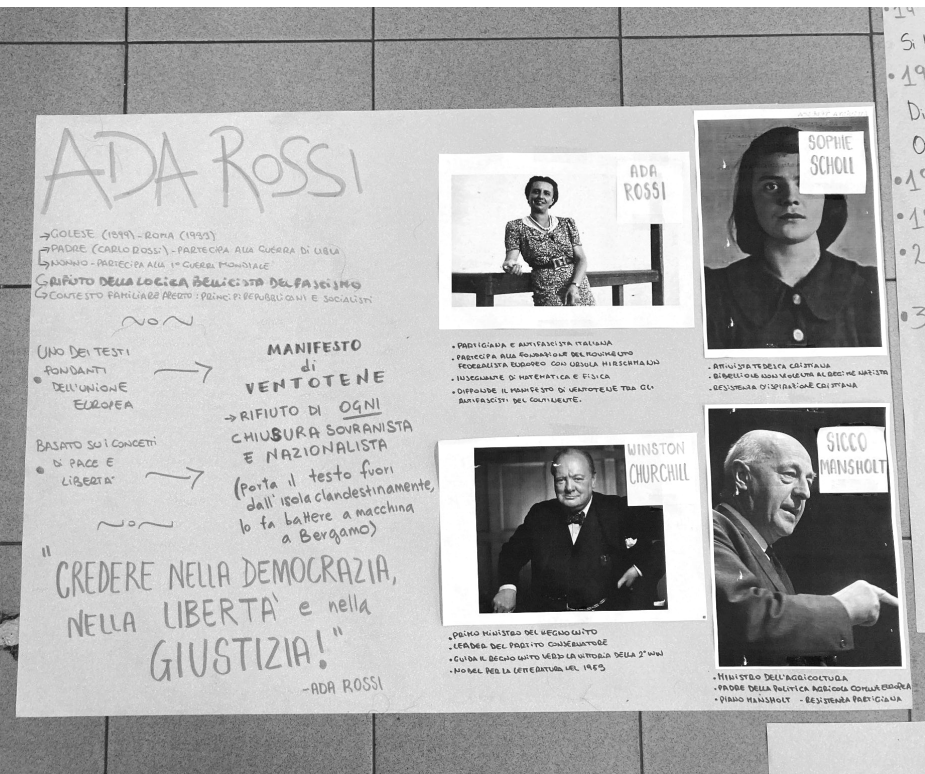 ADA ROSSI
→GOLESE (1899)-ROMA (1993)
→PADRE (CARLO ROSSI)-PARTECIPA ALLA GUERRA DI LIBIA
↳NONNO-PARTECIPA ALLA 1ª GUERRA MONDIALE
↳RIFIUTO DELLA LOGICA BELLICISTA DEL FASCISMO
↳CONTESTO FAMILIARE APERTO: PRINCIPI REPUBBLICANI E SOCIALISTI
UNO DEI TESTI
FONDANTI
DELL'UNIONE
EUROPEA
MANIFESTO
di
VENTOTENE
→RIFIUTO DI OGNI
CHIUSURA SOVRANISTA
E NAZIONALISTA
(porta il testo fuori
dall'isola clandestinamente,
lo fa battere a macchina
a Bergamo)
BASATO SUI CONCETTI
DI PACE E
LIBERTA'
"CREDERE NELLA DEMOCRAZIA,
NELLA LIBERTA' e nella
GIUSTIZIA!"
-ADA ROSSI
ADA
ROSSI
• PARTIGIANA E ANTIFASCISTA ITALIANA
• PARTECIPA ALLA FONDAZIONE DEL MOVIMENTO
FEDERALISTA EUROPEO CON URSULA HIRSCHMANN
• INSEGNANTE DI MATEMATICA E FISICA
• DIFFONDE IL MANIFESTO DI VENTOTENE TRA GLI
ANTIFASCISTI DEL CONTINENTE.
SOPHIE
SCHOLL
• ATTIVISTA TEDESCA CRISTIANA
• RIBELLIONE NON VIOLENTA AL REGIME NAZISTA
• RESISTENZA D'ISPIRAZIONE CRISTIANA
WINSTON
CHURCHILL
• PRIMO MINISTRO DEL REGNO UNITO
• LEADER DEL PARTITO CONSERVATORE
• GUIDA IL REGNO UNITO VERSO LA VITTORIA DELLA 2ª WW
• NOBEL PER LA LETTERATURA NEL 1953
SICCO
MANSHOLT
• MINISTRO DELL'AGRICOLTURA
• PADRE DELLA POLITICA AGRICOLA COMUNE EUROPEA
• PIANO MANSHOLT - RESISTENZA PARTIGIANA
• 14
Si
• 19
Di
• 2
• 3